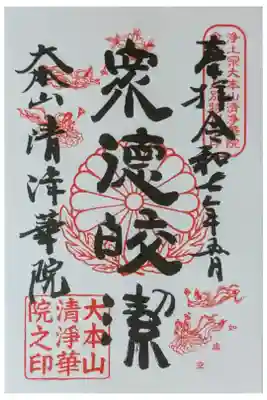 浄土宗大本山清浄華院
奉拝 令和七年五月
衆徳皎潔
大本山清浄華院
如虚空
大本山
清淨華
院之印